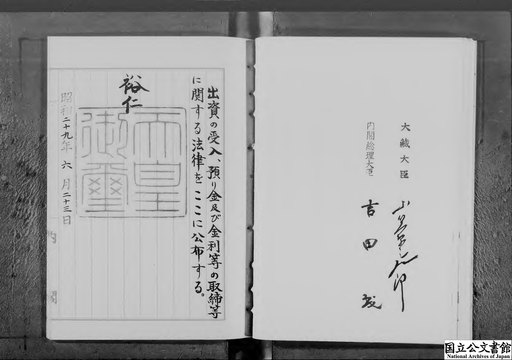 出資の受入、預り金及び金利等の取締等
に関する法律をここに公布する。
裕仁
天皇御璽
昭和二十九年六月二十三日
大藏大臣
内閣総理大臣
吉田茂
国立公文書館
National Archives of Japan